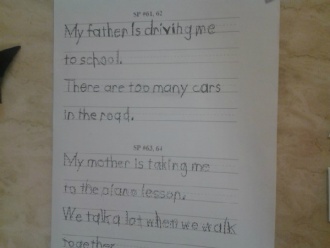 SP #61, 62
My father is driving me
to school.
There are too many cars
in the road.
SP #63, 64
My mother is taking me
to the piano lesson.
We talk a lot when we walk
together